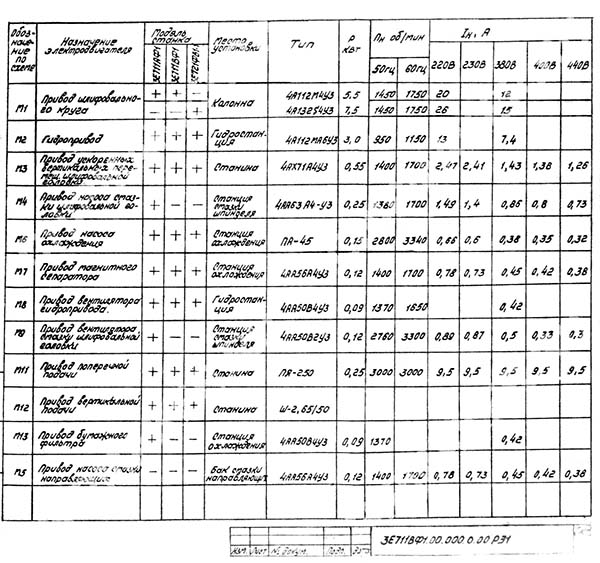 Обоз-
начение
по
схеме
Назначение
электродвигателя
Модель
станка
3Е711АФ1
3Е711ВФ1
3Е721ВФ1-1
Место
установки
Тип
Р
кВт
Пн об/мин
50гц
60гц
Iн, А
220В
230В
380В
400В
440В
М1 Привод шлифовально-
го круга
+ + − Колонна 4А112М4У3 5,5 1450 1750 20 12
− − + 4А132S4У3 7,5 1450 1750 26 15
М2 Гидропривод + + + Гидростан-
ция 4А112МА6У3 3,0 950 1150 13 7,4
М3 Привод ускоренных
вертикальных пере-
мещ. шлифовальной
головки + + + Станина 4АХ71А4У3 0,55 1400 1700 2,41 2,41 1,43 1,38 1,26
М4 Привод насоса смаз-
ки шлифовальной го-
ловки + − − Станция
смазки
шпинделя 4АА63А4-У3 0,25 1380 1700 1,49 1,4 0,86 0,8 0,73
М6 Привод насоса
охлаждения + + + Станция
охлаждения ПА-45 0,15 2800 3340 0,66 0,6 0,38 0,35 0,32
М7 Привод магнитного
сепаратора + + + Станция
охлаждения 4АА56А4У3 0,12 1400 1700 0,78 0,73 0,45 0,42 0,38
М8 Привод вентилятора
гидропривода + + + Гидростан-
ция 4АА50В4У3 0,09 1370 1650 0,42
М9 Привод вентилятора
смазки шлифовальной
головки + − − Станция
смазки
шпинделя 4АА50В2У3 0,12 2760 3300 0,89 0,87 0,5 0,33 0,3
М11 Привод поперечной
подачи + + + Станина ПЯ-250 0,25 3000 3000 9,5 9,5 9,5 9,5 9,5
М12 Привод вертикальной
подачи + + + Станина Ш-2,65/50
М13 Привод бумажного
фильтра + − − Станция
охлаждения 4АА50В4У3 0,09 1370 0,42
М5 Привод насоса смазки
направляющих + − − Бак смазки
направляющих 4АА56А4У3 0,12 1400 1790 0,78 0,73 0,45 0,42 0,38
3Е711ВФ1.00.000.0.00 РЭ1
Изм. Лист № докум. Подп. Дата